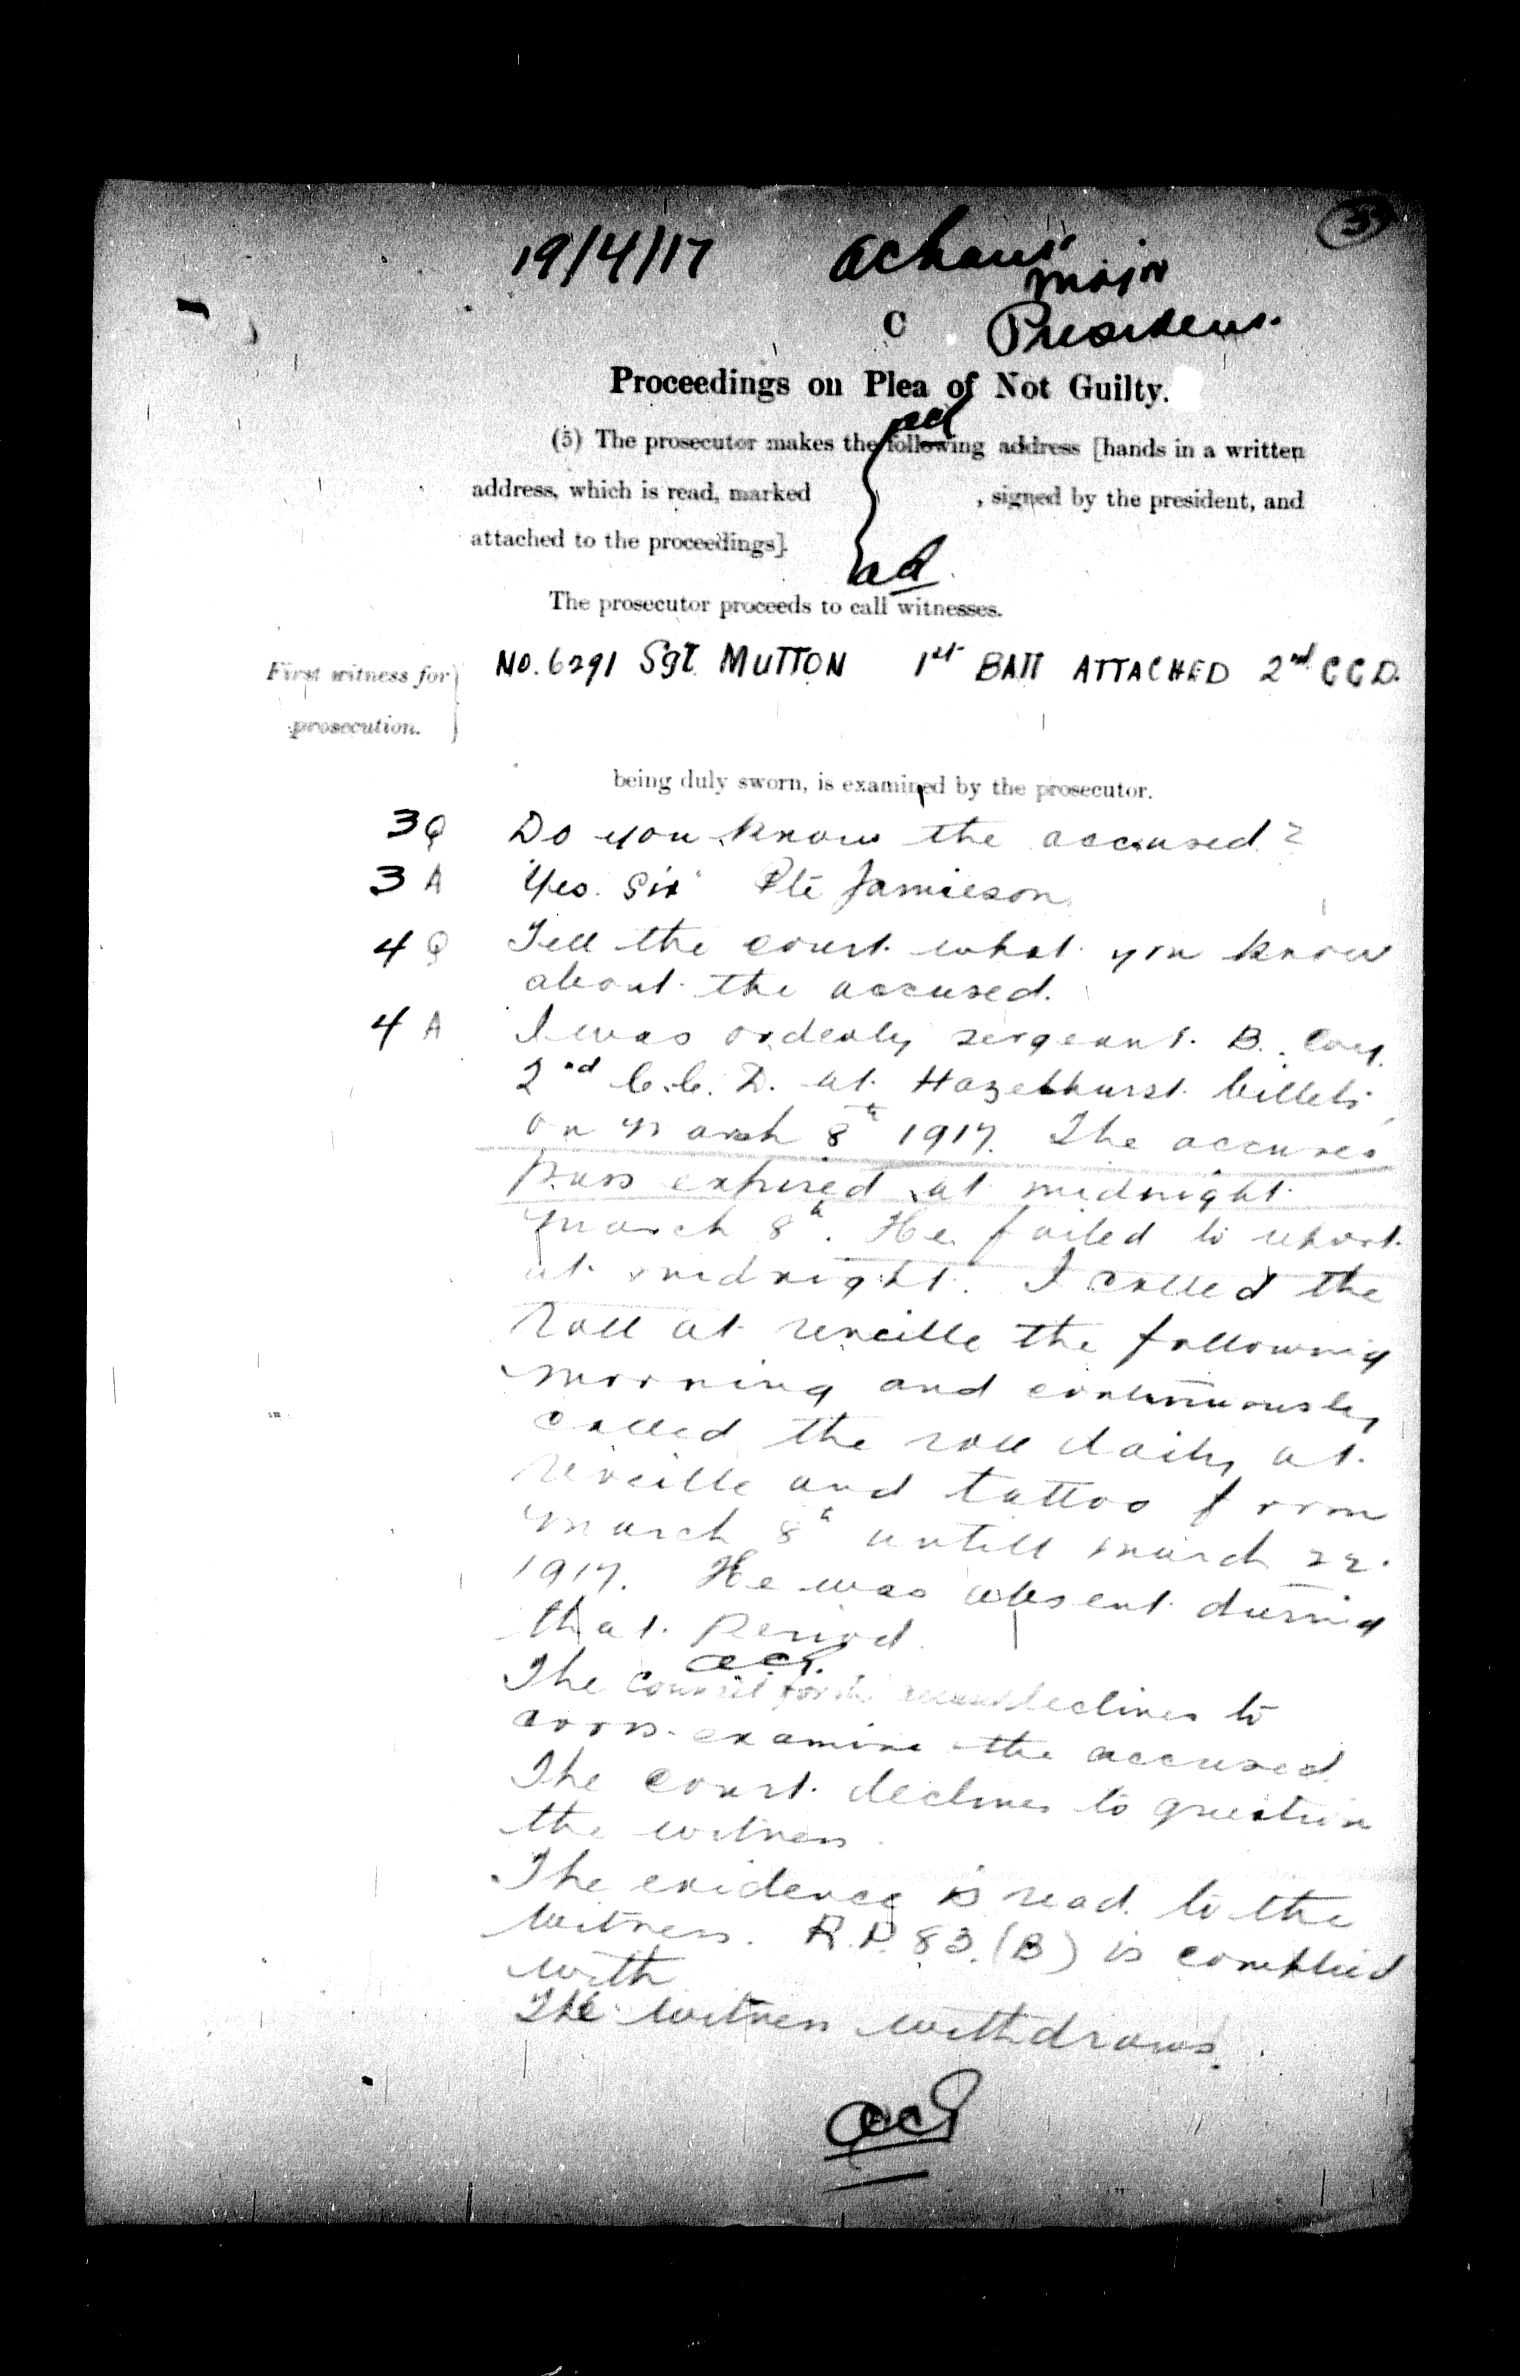 19/4/17
Major
C President
Proceedings on Plea of Not Guilty.
(5) The prosecutor makes the following address [hands in a written
address, which is read, marked , signed by the president, and
attached to the proceedings].
The prosecutor proceeds to call witnesses.
First witness for
prosecution.
No. 6291 Sgt MUTTON 1st BATT ATTACHED 2nd C C D.
being duly sworn, is examined by the prosecutor.
3 Q Do you know the accused?
3 A Yes. Sir Pte Jamieson
4 Q Tell the court what you know
about the accused.
4 A I was orderly sergeant. B. Coy.
2nd C.C.D. at Hazelhurst billets
on March 8th 1917. The accused
pass expired at midnight
March 8th. He failed to report
at midnight. I called the
roll at reveille the following
morning and continuously
called the roll daily at
reveille and tattoo from
March 8th untill March 22
1917. He was absent during
that Period.
The declines to
cross-examine the accused
The court declines to question
the witness
The evidence is read to the
witness. R.P. 83.(B) is complied
with
The witness withdraws.